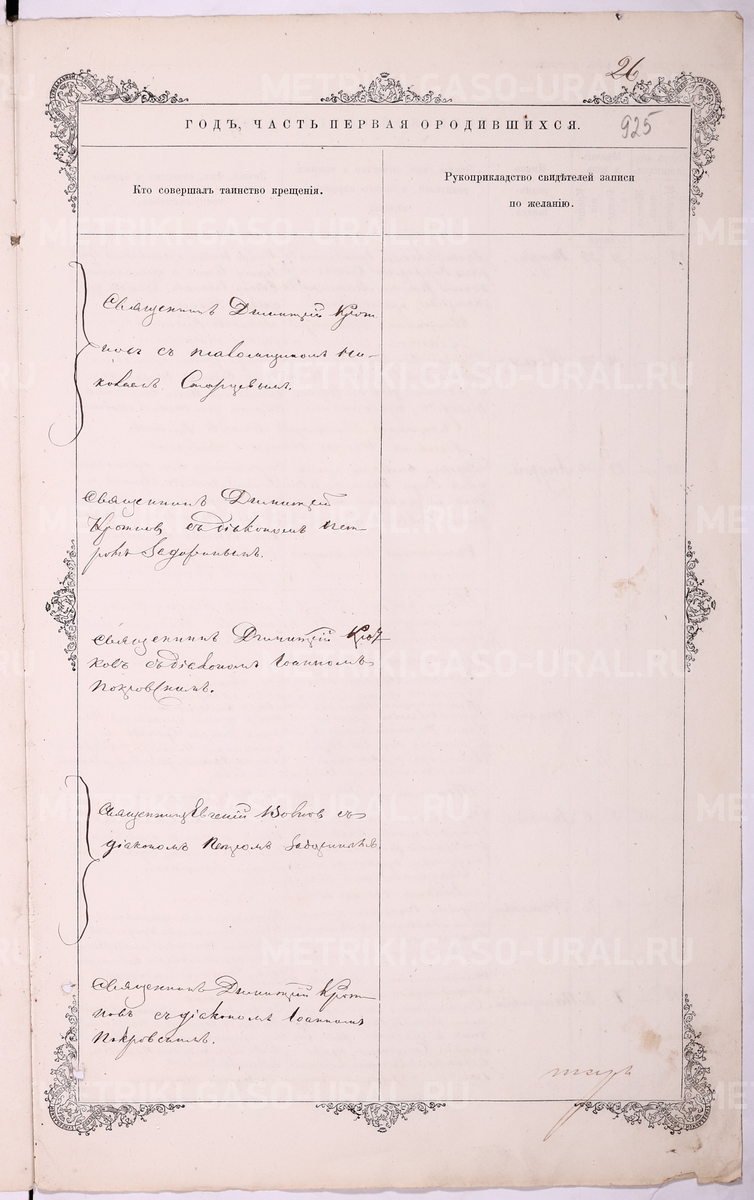 26
925
ГОДЪ, ЧАСТЬ ПЕРВАЯ О РОДИВШИХСЯ.
Кто совершалъ таинство крещенія.
Рукоприкладство свидѣтелей записи
по желанію.
Священникъ Димитрій
съ псаломщикомъ Ни-
колаемъ Старцевымъ.
Священникъ Димитрій
съ діакономъ Пет-
ромъ
Священникъ Димитрій
съ діакономъ Іоанномъ
Покровскимъ.
Священникъ Евгеній съ
діакономъ Петромъ
Священникъ Димитрій
съ діакономъ Іоанномъ
Покровскимъ.
METRIKI.GASO-URAL.RU